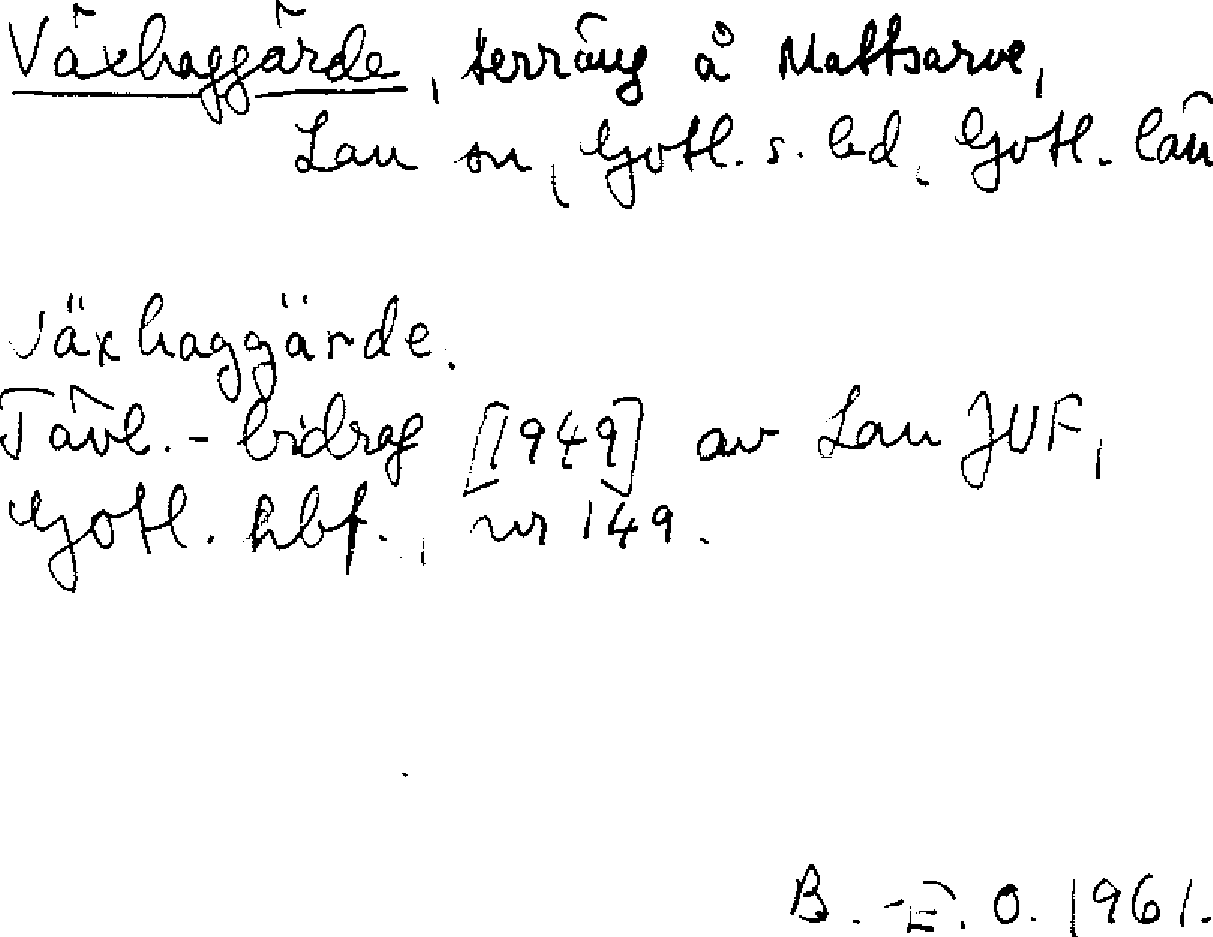 Växhaggärde, terräng å Mattsarve,
Lau sn, Gotl. s. hd, Gotl. län
Växhaggärde.
Tävl.-bidrag [1949] av Lau JUF,
Gotl. hbf., nr 149.
B.-E. O. 1961.